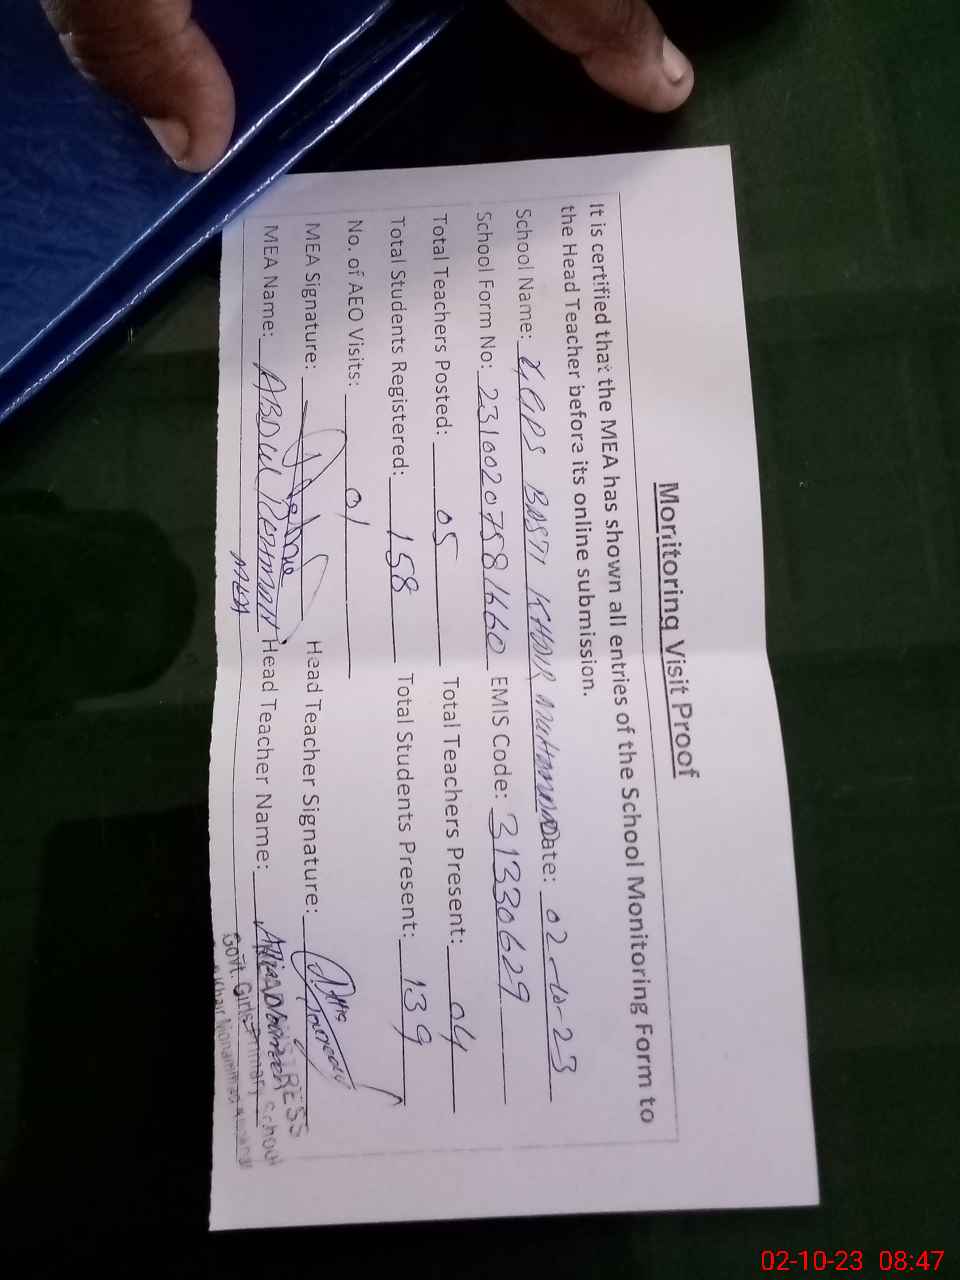 Monitoring Visit Proof
It is certified that the MEA has shown all entries of the School Monitoring Form to
the Head Teacher before its online submission.
School Name: GGPS BASTI KHAIR MUHAMMAD Date: 02-10-23
School Form No: 23100207581660 EMIS Code: 31330629
Total Teachers Posted: 05 Total Teachers Present: 04
Total Students Registered: 158 Total Students Present: 139
No. of AEO Visits: 01
MEA Signature: Head Teacher Signature:
MEA Name: ABDUL REHMAN Head Teacher Name:
MEA
Govt. Girls Primary School
Khair Mohammad
02-10-23 08:47